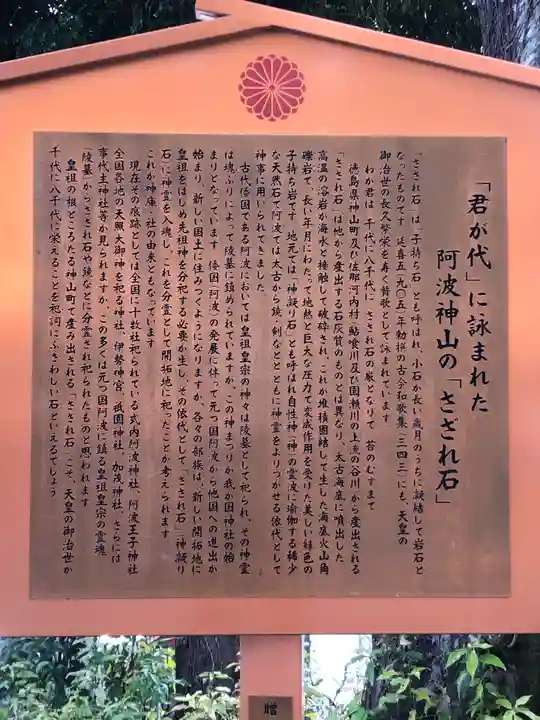 「君が代」に詠まれた
阿波神山の「さざれ石」
「さざれ石」は「子持ち石」とも呼ばれ、小石が長い歳月のうちに凝結して岩石と
なったものです 延喜五(九〇五)年勅撰の古今和歌集(三四三)にも、天皇の
御治世の長久繁栄を寿ぐ賀歌として詠まれています
わが君は 千代に八千代に さざれ石の巌となりて 苔のむすまで
徳島県神山町及び佐那河内村 鮎喰川及び園瀬川の上流の谷川から産出される
「さざれ石」は他から産出する石灰質のものとは異なり、太古海底に噴出した
高温の溶岩が海水と接触して破砕され、これが堆積固結して生した海底火山角
礫岩で、長い年月にわたって地熱と巨大な圧力で変成作用を受けた美しい緑色の
子持ち岩です 地元では「神凝り石」とも呼ばれ自性神(神)の霊波に瑜伽する稀少
な天然石で阿波では太古から鏡、剣などとともに神霊をよりつかせる依代として
神事に用いられてきました
古代倭国である阿波においては皇祖皇宗の神々は陵墓として祀られ、その神霊
は魂ふりによって陵墓に鎮められていますが、この神まつりが我が国神社の始
まりとなっています 倭国(阿波)の発展に伴って元つ国阿波から他国への進出が
始まり、新しい国土に住みつくようになりますが、各々の部族は、新しい開拓地に
皇祖をはじめ先祖神を分祀する必要が生し、その依代として「さざれ石」(神凝り
石)に神霊を入魂し、これを分霊として開拓地に祀ったことが考えられます
これが神庫・社の由来ともなっています
現在その痕跡としては全国に十数社祀られている式内阿波神社、阿波王子神社
全国各地の天照大御神を祀る神社、伊勢神宮、祇園神社、加茂神社、さらには
事代主神社等が見られますが、この多くは元つ国阿波に鎮る皇祖皇宗の霊魂
(陵墓)からさざれ石や鏡などに分霊され祀られたものと思われます
皇祖の根どころたる神山町で産み出される「さざれ石」こそ、天皇の御治世が
千代に八千代に栄えることを祀詞にふさわしい石といえるでしょう
贈